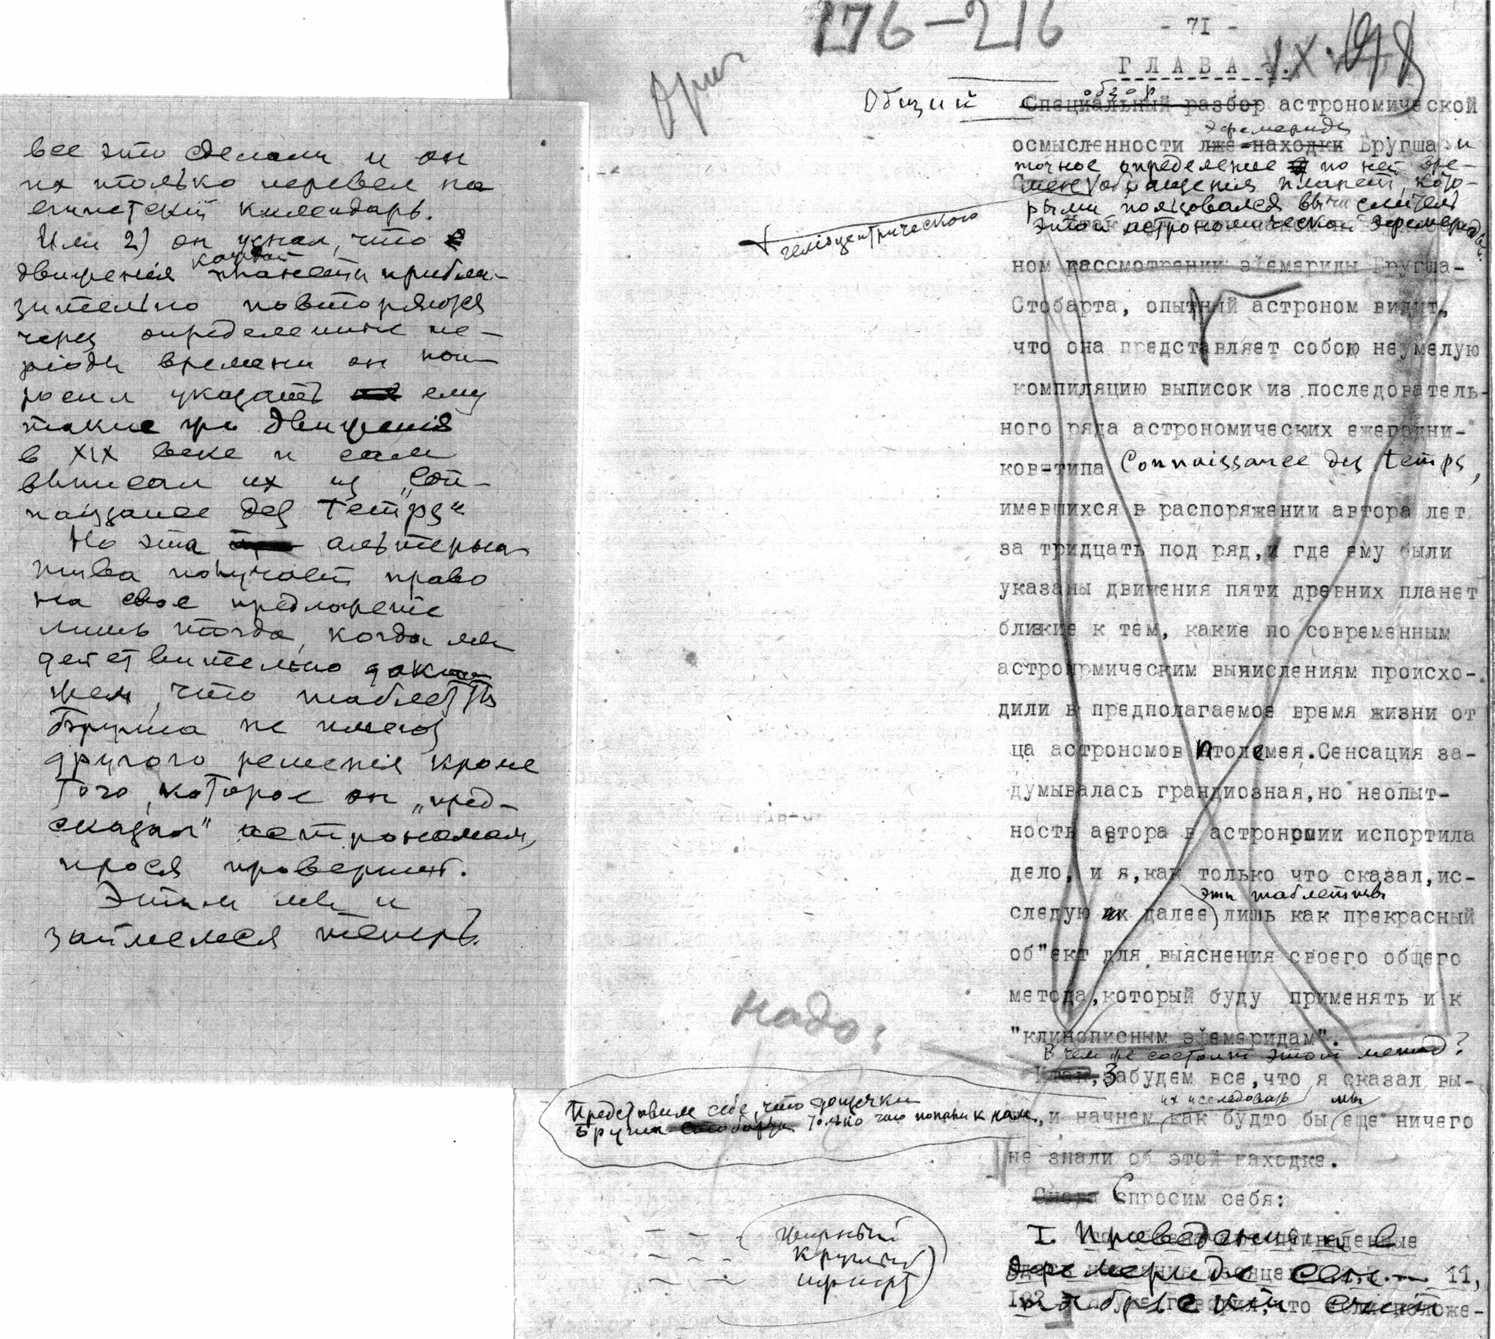 все это сделали и он
их только перевел на
египетский календарь.
Или 2) он узнал, что
каждой
движения планеты прибли-
зительно повторяются
через определенные пе-
риоды времени он поп-
росил указать ему
такие же движения
в XIX веке и сам
выписал их из „Con-
naissance des Temps“
Но эта альтерна-
тива получает право
на свое предложение
лишь тогда, когда мы
действительно дока-
жем, что таблетки
Бругша не имеют
другого решения кроме
того, которое он „пред-
сказал“ астрономам,
прося проверить.
Этим мы и
займемся теперь.
176-216
- 71 -
ГЛАВА
Ориг
обзор
Общий Специальный разбор астрономической
эфемериды
осмысленности лже-находки Бругша и
точное определение по ней вре-
мен обращения планет, кото-
рыми пользовался вычислитель
этой астрономической эфемериды.
гелиоцентрического
ном рассмотрении эфемериды Бругша-
Стобарта, опытный астроном видит,
что она представляет собою неумелую
компиляцию выписок из последователь-
ного ряда астрономических ежегодни-
ков-типа Connaissance des temps,
имевшихся в распоряжении автора лет
за тридцать под ряд, и где ему были
указаны движения пяти древних планет
близкие к тем, какие по современным
астрономическим вычислениям происхо-
дили в предполагаемое время жизни от
ца астрономов Птолемея. Сенсация за-
думывалась грандиозная, но неопыт-
ность автора в астрономии испортила
дело, и я, как только что сказал, ис-
эти таблетки
следую их далее лишь как прекрасный
об"ект для выяснения своего общего
метода, который буду применять и к
"клинописным эфемеридам".
надо:
В чем же состоит этот метод?
Итак, Забудем все, что я сказал вы-
Представим себе, что дощечки
Бругша Стобарта только что попали к нам
их исследовать мы
, и начнем как будто бы еще ничего
не знали об этой находке.
Спросим себя:
жирный
круглый
шрифт
I. Приведенный в
эфемериде 11,